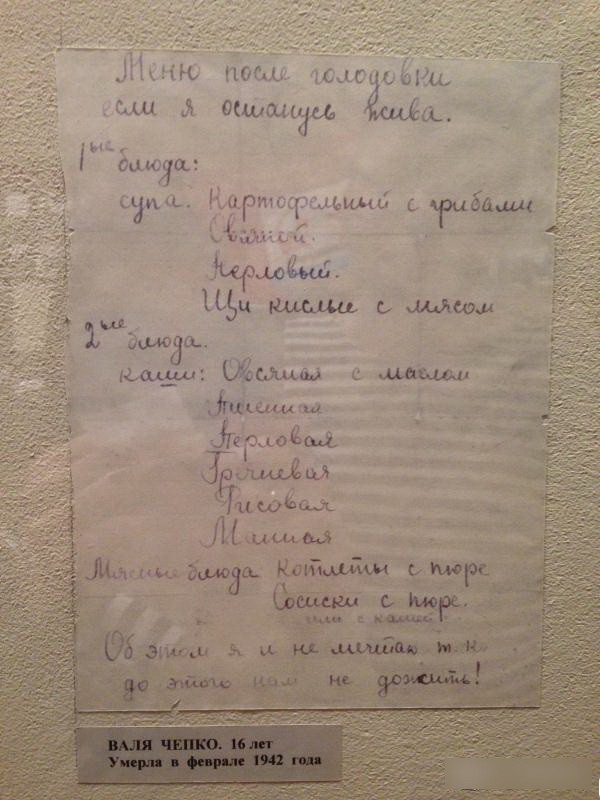 Меню после голодовки
если я останусь жива.
1ые блюда:
супа. Картофельный с грибами
Овсяной.
Перловый.
Щи кислые с мясом
2ые блюда.
каши: Овсяная с маслом
Пшенная
Перловая
Гречневая
Рисовая
Манная
Мясные блюда Котлеты с пюре
Сосиски с пюре.
или с кашей
Об этом я и не мечтаю т.к.
до этого нам не дожить!
ВАЛЯ ЧЕПКО. 16 лет
Умерла в феврале 1942 года